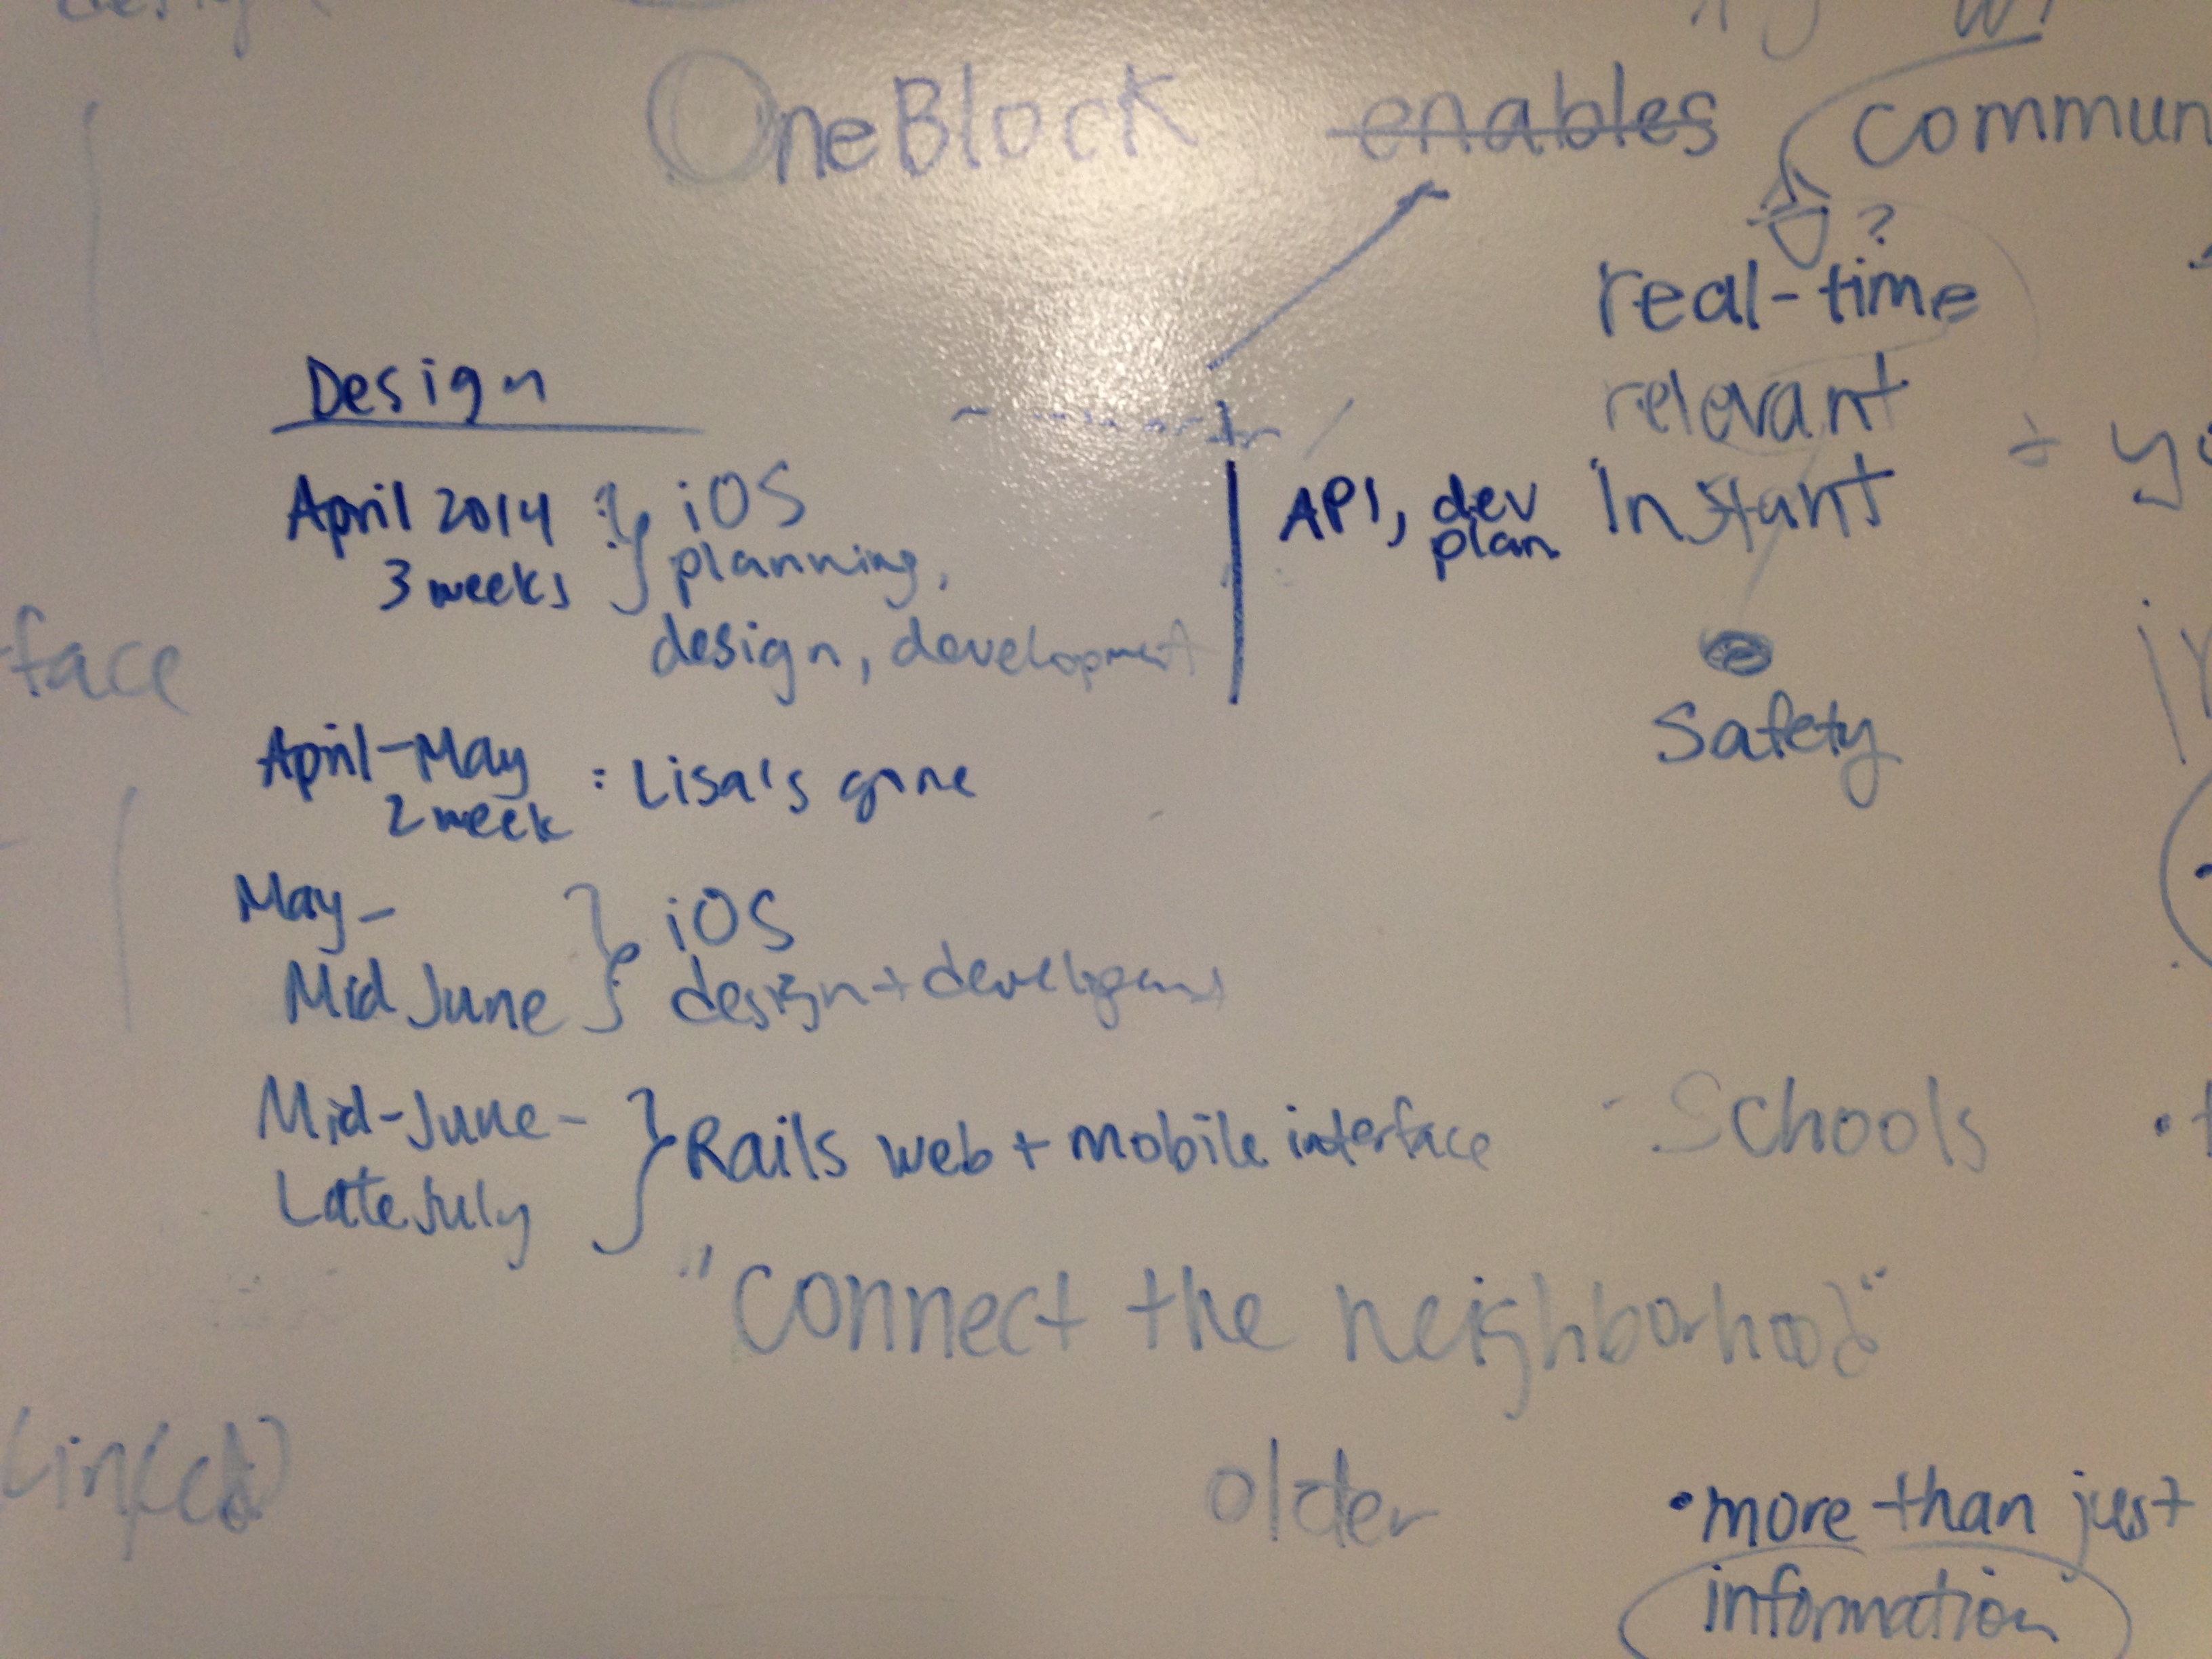 OneBlock enables commun
?
real-time
relevant
Instant
Safety
Design
April 2014
3 weeks
iOS
planning,
design, development
API, dev
plan
April-May
2 week
: Lisa's gone
May -
Mid June
iOS
design + development
Mid-June -
Late July
Rails web + mobile interface
- Schools
face
"Connect the neighborhood"
older
• more than just
information